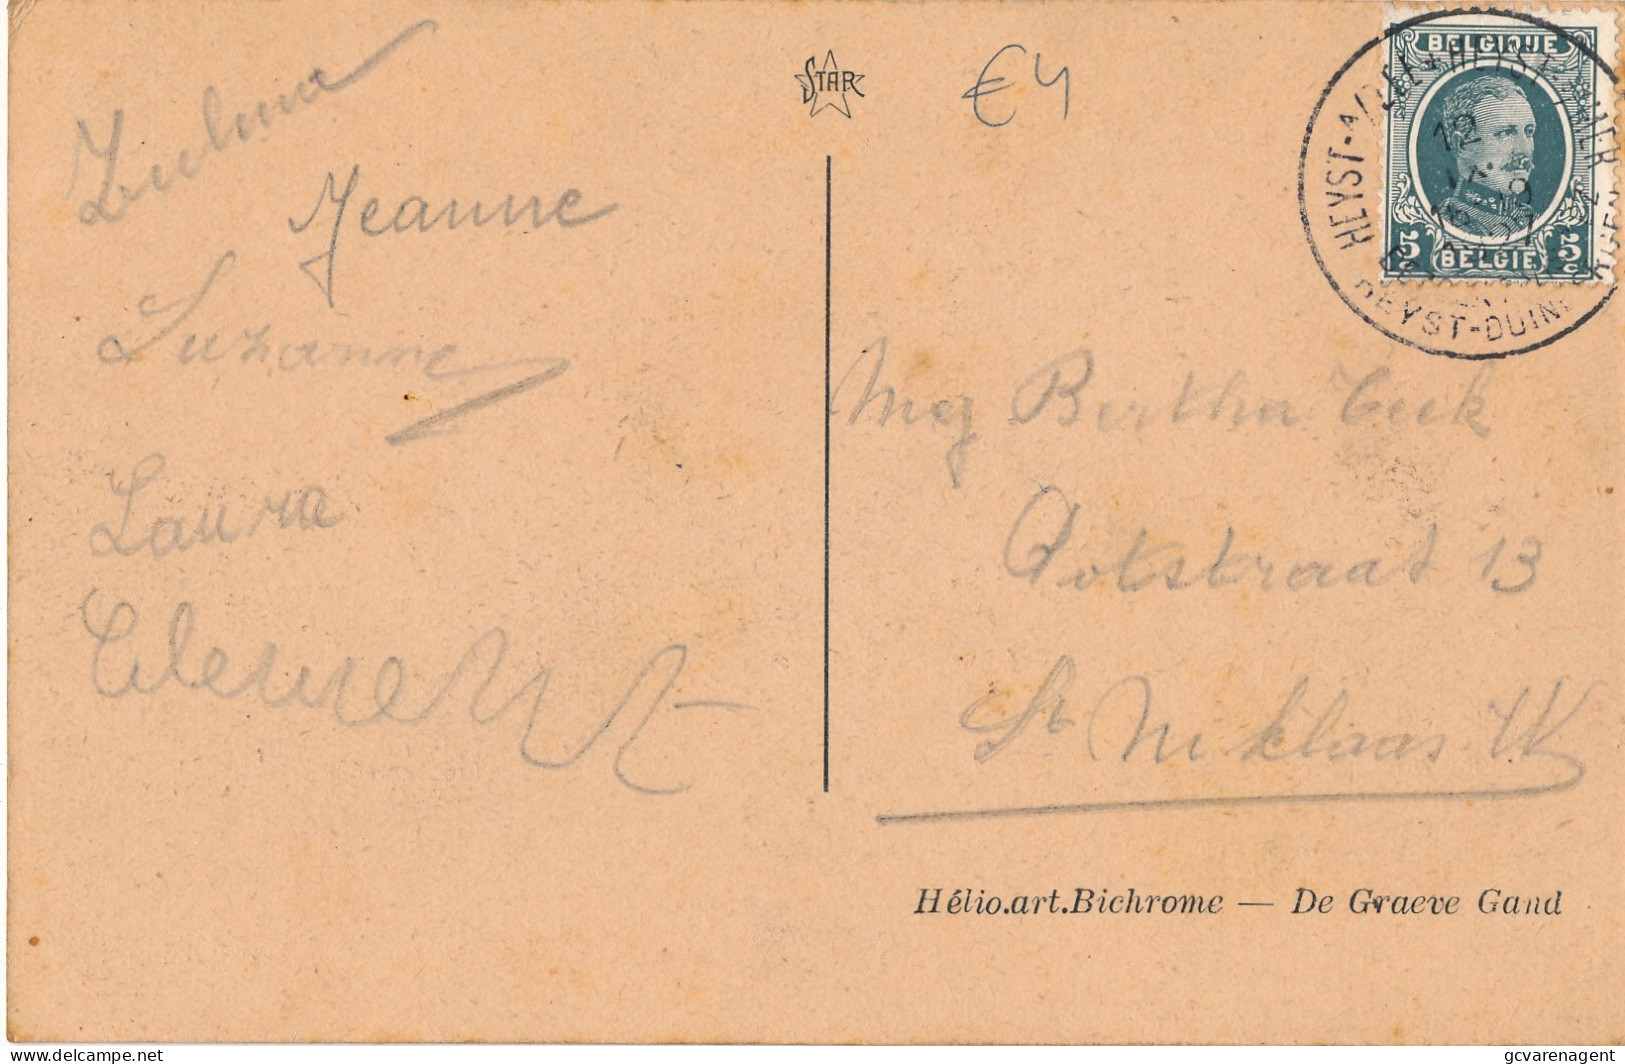 Zulma
Jeanne
Suzanne
Laura
Clement
STAR
€4
BELGIQUE
5 BELGIË 5
C
HEYST-A/ZEE + HEYST S/MER
12
HEYST-DUINBERGEN
Mej Bertha
straat 13
St Niklaas W
Hélio.art.Bichrome — De Graeve Gand
delcampe.net
gcvarenagent